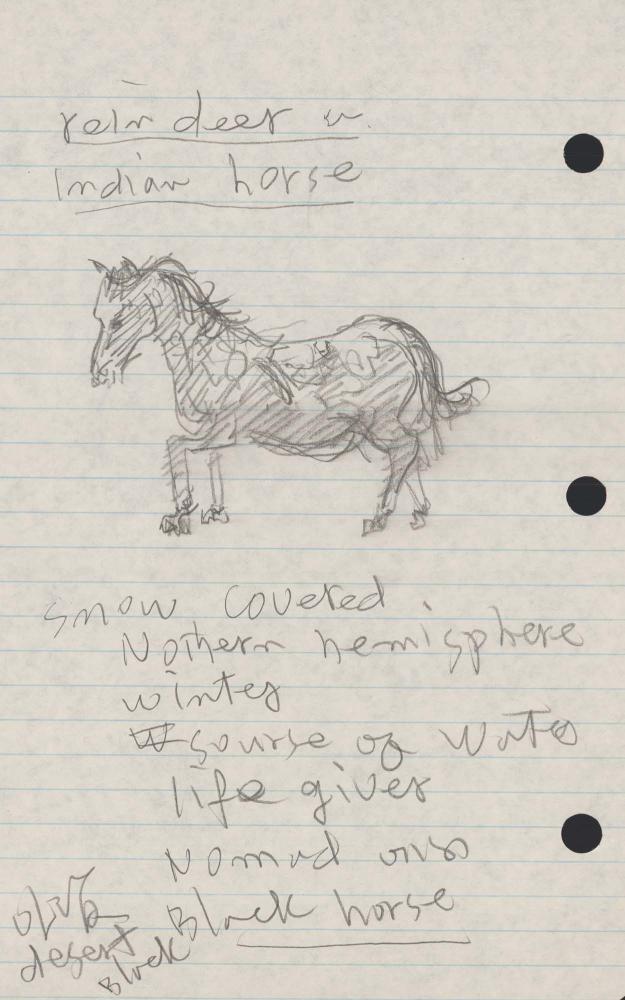 reindeer
Indian horse
snow covered
Nothern hemisphere
winter
sourse of
life giver
Nomad
Black horse
desert
Black